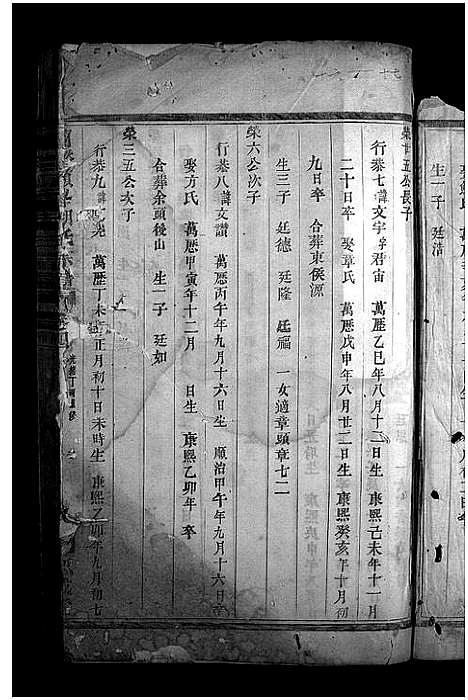 生一子 廷浩
榮廿五公長子
行恭七諱文宇字君宙 萬歷乙巳年八月十二日生 康熙己未年十一月
二十日卒 娶章氏 萬歷戊申年八月廿二日生 康熙癸亥年十月初
九日卒 合葬東侯源
生三子 廷德 廷隆 廷福 一女適章頭章七二
榮六公次子
行恭八諱文讚 萬歷丙午年九月十六日生 順治甲午年九月十六日卒
娶方氏 萬歷甲寅年十二月 日生 康熙乙卯年 卒
合葬余頭後山 生一子 廷如
榮三五公次子
行恭九諱文光 萬歷丁未年正月初十日未時生 康熙乙卯年九月初七